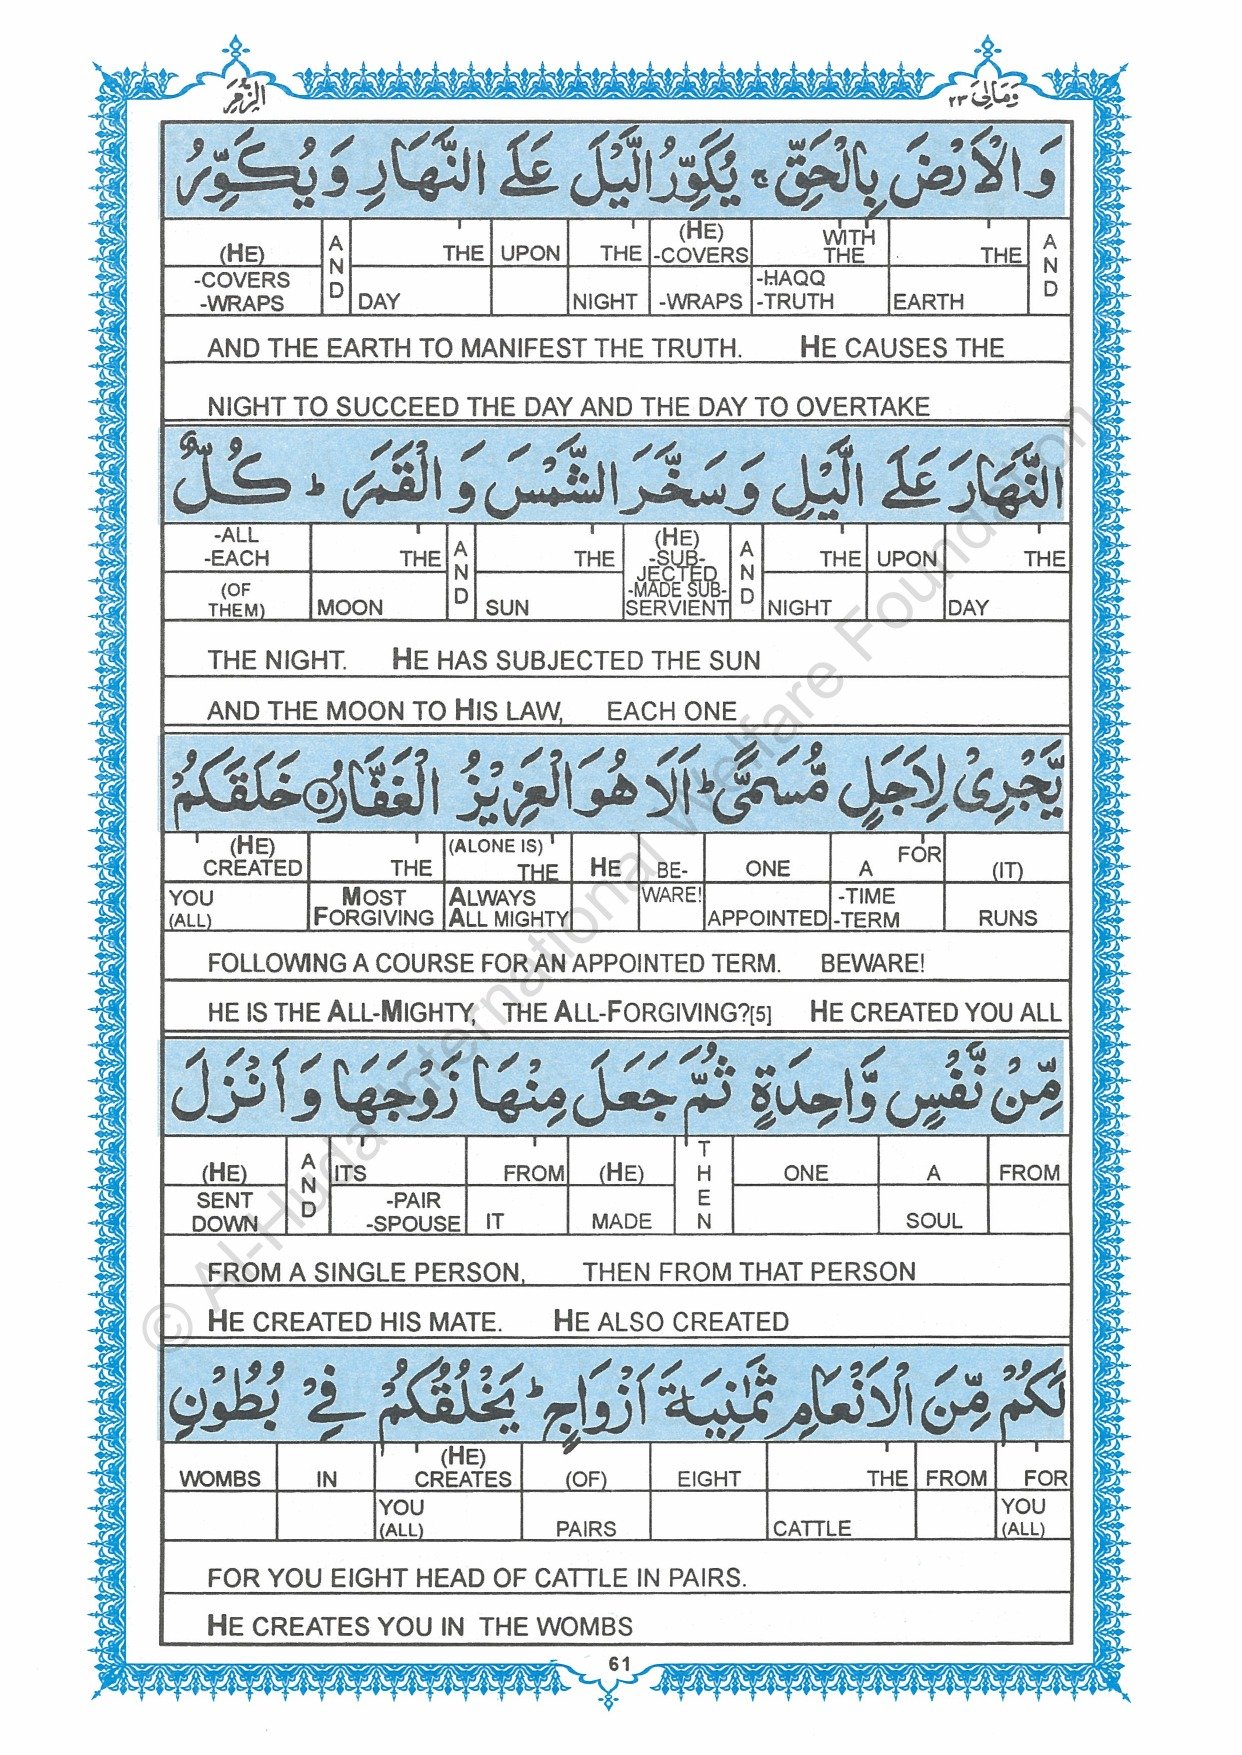 الزُّمَر
وَمَالِىَ ٢٣
وَ الْاَرْضَ بِالْحَقِّ ۚ يُكَوِّرُ الَّيْلَ عَلَى النَّهَارِ وَ يُكَوِّرُ
(HE) AND THE UPON THE (HE) -COVERS WITH THE THE AND
-COVERS -WRAPS DAY NIGHT -WRAPS -HAQQ -TRUTH EARTH
AND THE EARTH TO MANIFEST THE TRUTH. HE CAUSES THE
NIGHT TO SUCCEED THE DAY AND THE DAY TO OVERTAKE
النَّهَارَ عَلَى الَّيْلِ وَ سَخَّرَ الشَّمْسَ وَ الْقَمَرَ ؕ كُلٌّ
-ALL -EACH THE AND THE (HE) -SUB- JECTED AND THE UPON THE
(OF THEM) MOON SUN -MADE SUB- SERVIENT NIGHT DAY
THE NIGHT. HE HAS SUBJECTED THE SUN
AND THE MOON TO HIS LAW, EACH ONE
يَّجْرِىْ لِاَجَلٍ مُّسَمًّى ؕ اَلَا هُوَ الْعَزِيْزُ الْغَفَّارُ ۝٥ خَلَقَكُمْ
(HE) CREATED THE (ALONE IS) THE HE BE- ONE A FOR (IT)
YOU (ALL) MOST FORGIVING ALWAYS ALL MIGHTY WARE! APPOINTED -TIME -TERM RUNS
FOLLOWING A COURSE FOR AN APPOINTED TERM. BEWARE!
HE IS THE ALL-MIGHTY, THE ALL-FORGIVING?[5] HE CREATED YOU ALL
مِّنْ نَّفْسٍ وَّاحِدَةٍ ثُمَّ جَعَلَ مِنْهَا زَوْجَهَا وَ اَنْزَلَ
(HE) AND ITS FROM (HE) THEN ONE A FROM
SENT DOWN -PAIR -SPOUSE IT MADE SOUL
FROM A SINGLE PERSON, THEN FROM THAT PERSON
HE CREATED HIS MATE. HE ALSO CREATED
لَكُمْ مِّنَ الْاَنْعَامِ ثَمٰنِيَةَ اَزْوَاجٍ ؕ يَخْلُقُكُمْ فِىْ بُطُوْنِ
WOMBS IN (HE) CREATES (OF) EIGHT THE FROM FOR
YOU (ALL) PAIRS CATTLE YOU (ALL)
FOR YOU EIGHT HEAD OF CATTLE IN PAIRS.
HE CREATES YOU IN THE WOMBS
61
© Al-Huda International Welfare Foundation